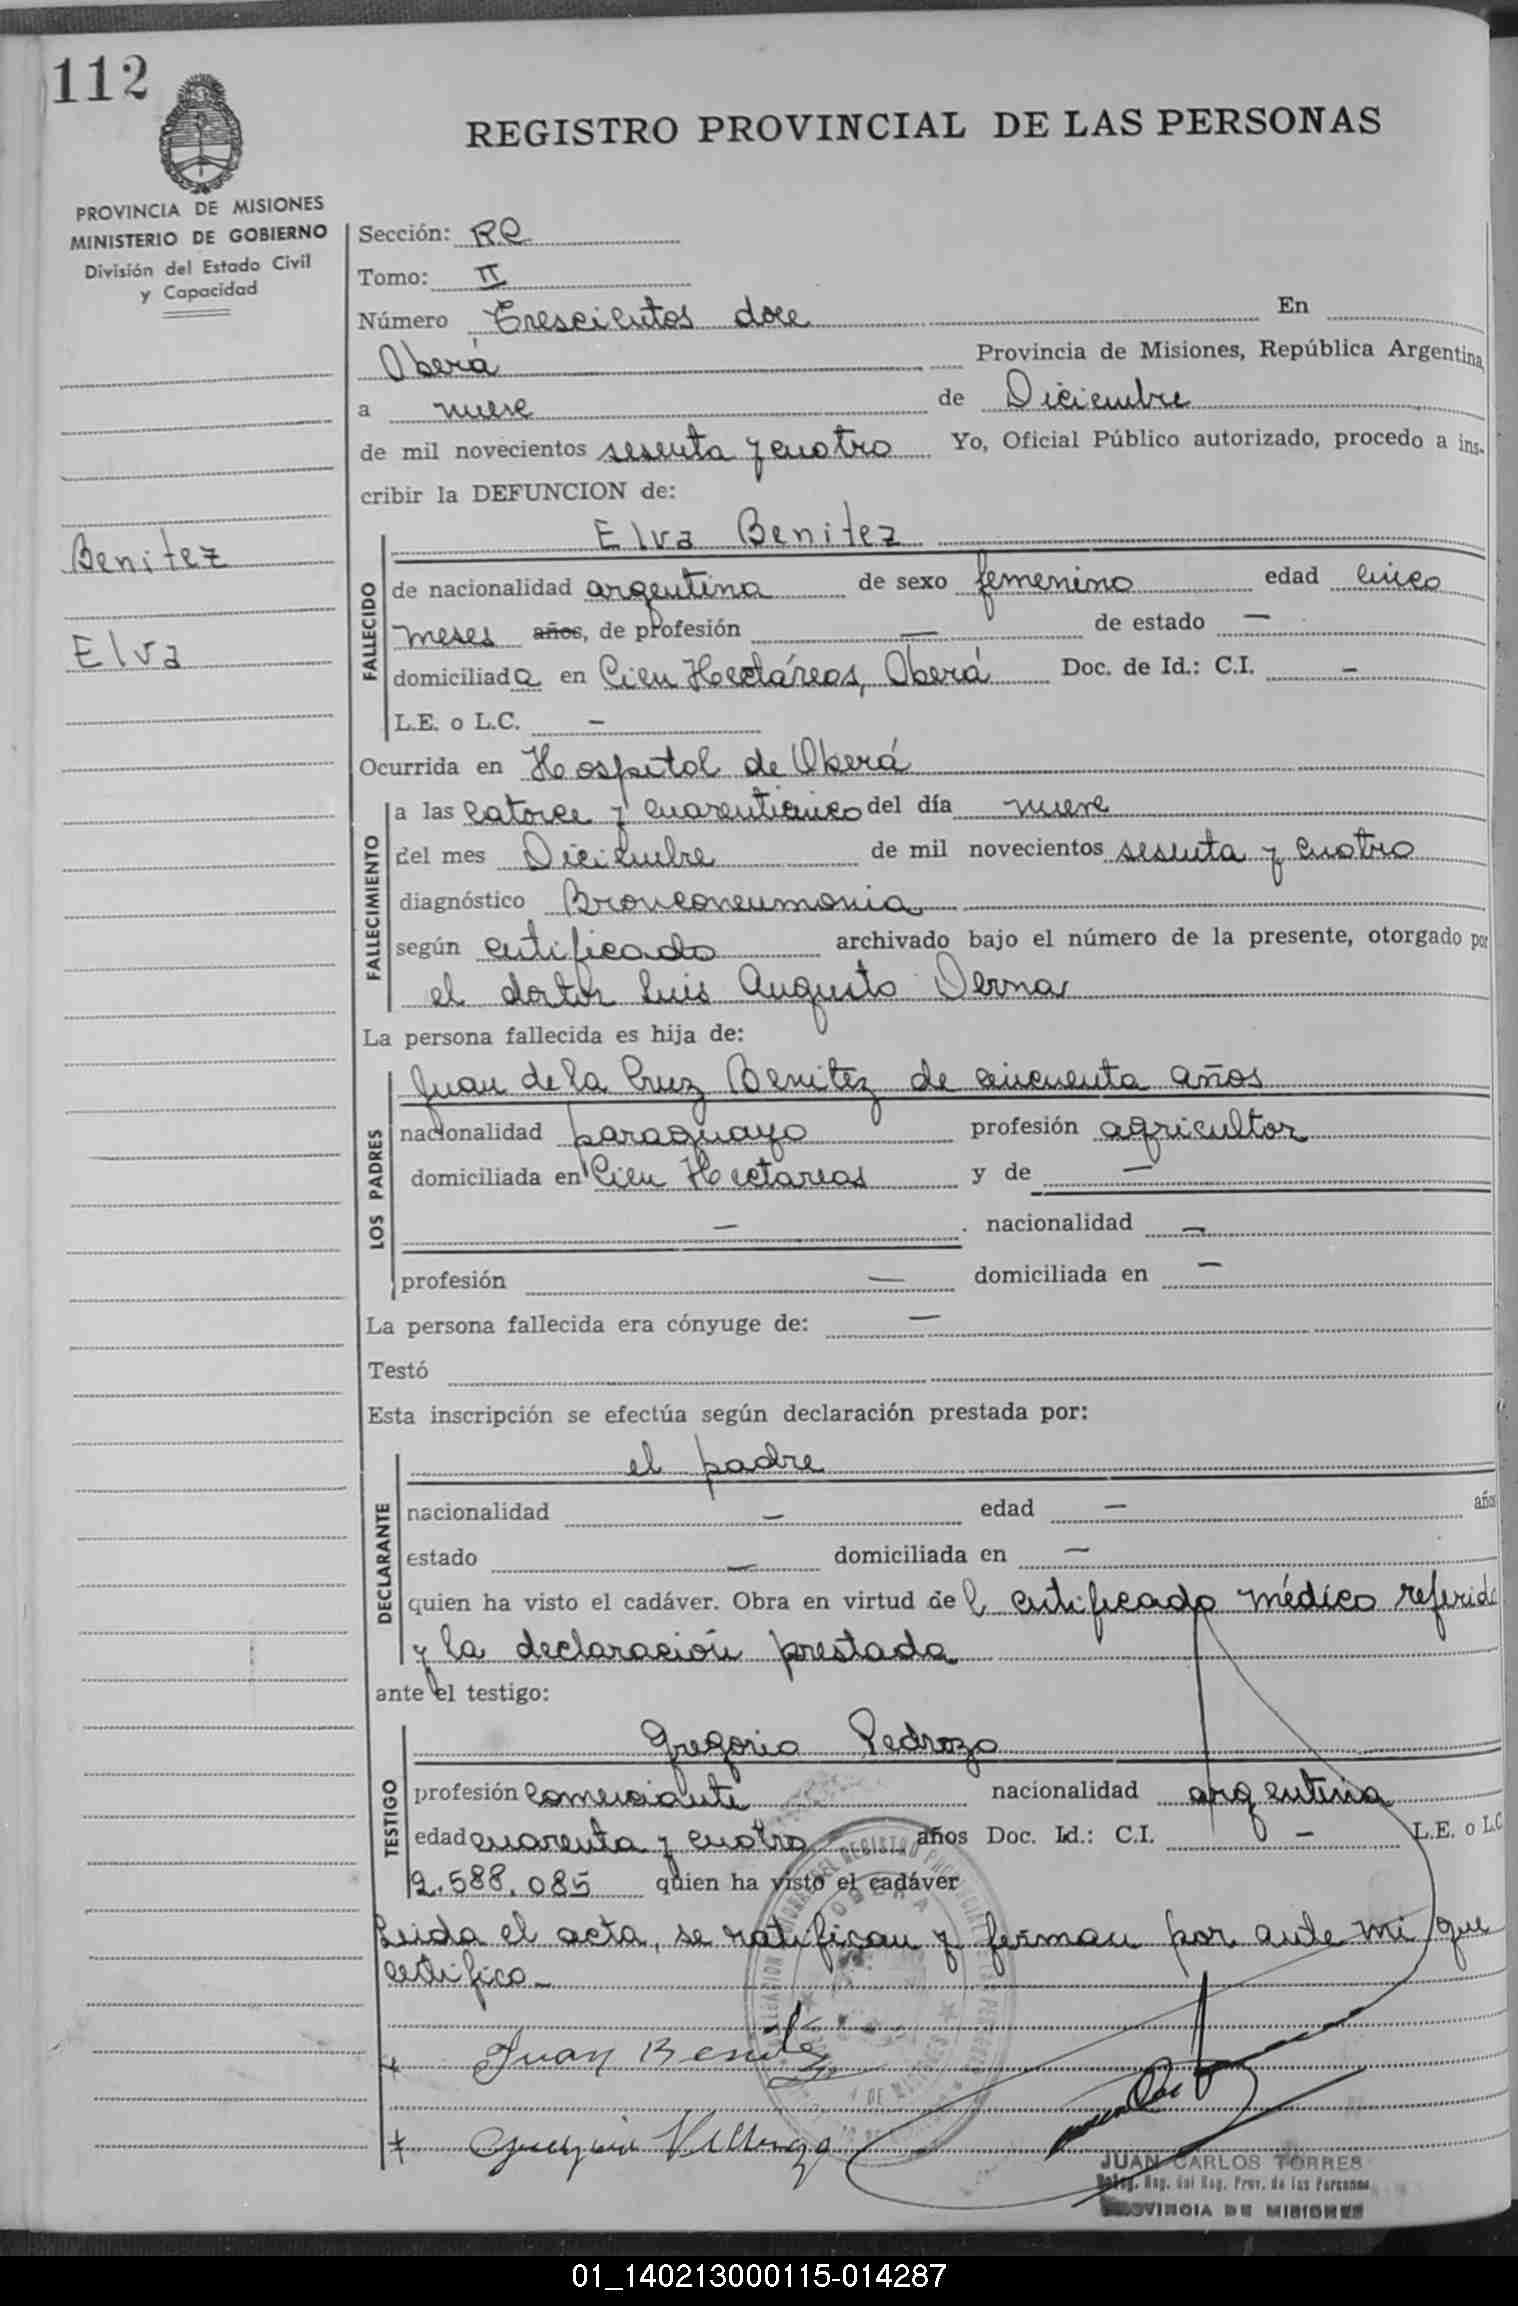 112
REGISTRO PROVINCIAL DE LAS PERSONAS
PROVINCIA DE MISIONES
MINISTERIO DE GOBIERNO
División del Estado Civil
y Capacidad
Benitez
Elva
Sección: R.C.
Tomo: II
Número Trescientos doce En
Oberá Provincia de Misiones, República Argentina,
a nueve de Diciembre
de mil novecientos sesenta y cuatro Yo, Oficial Público autorizado, procedo a ins-
cribir la DEFUNCION de:
FALLECIDO
Elva Benitez
de nacionalidad argentina de sexo femenino edad cinco
meses años, de profesión — de estado —
domiciliada en Cien Hectáreas, Oberá Doc. de Id.: C.I. —
L.E. o L.C. —
Ocurrida en Hospital de Oberá
FALLECIMIENTO
a las catorce y cuarenticinco del día nueve
del mes Diciembre de mil novecientos sesenta y cuatro
diagnóstico Bronconeumonia
según certificado archivado bajo el número de la presente, otorgado por
el doctor Luis Augusto Derna
La persona fallecida es hija de:
LOS PADRES
Juan de la Cruz Benitez de cincuenta años
nacionalidad paraguayo profesión agricultor
domiciliada en Cien Hectareas y de —
— . nacionalidad —
profesión — domiciliada en —
La persona fallecida era cónyuge de: —
Testó
Esta inscripción se efectúa según declaración prestada por:
DECLARANTE
el padre
nacionalidad — edad — años
estado — domiciliada en —
quien ha visto el cadáver. Obra en virtud del certificado médico referido
y la declaración prestada
ante el testigo:
TESTIGO
Gregorio Pedrozo
profesión comerciante nacionalidad argentina
edad cuarenta y cuatro años Doc. Id.: C.I. — L.E. o L.C.
2.588.085 quien ha visto el cadáver
Leida el acta, se ratifican y firman por ante mi que
certifico.—
Juan Benitez
JUAN CARLOS TORRES
Deleg. Reg. del Reg. Prov. de las Personas
PROVINCIA DE MISIONES
01_140213000115-014287